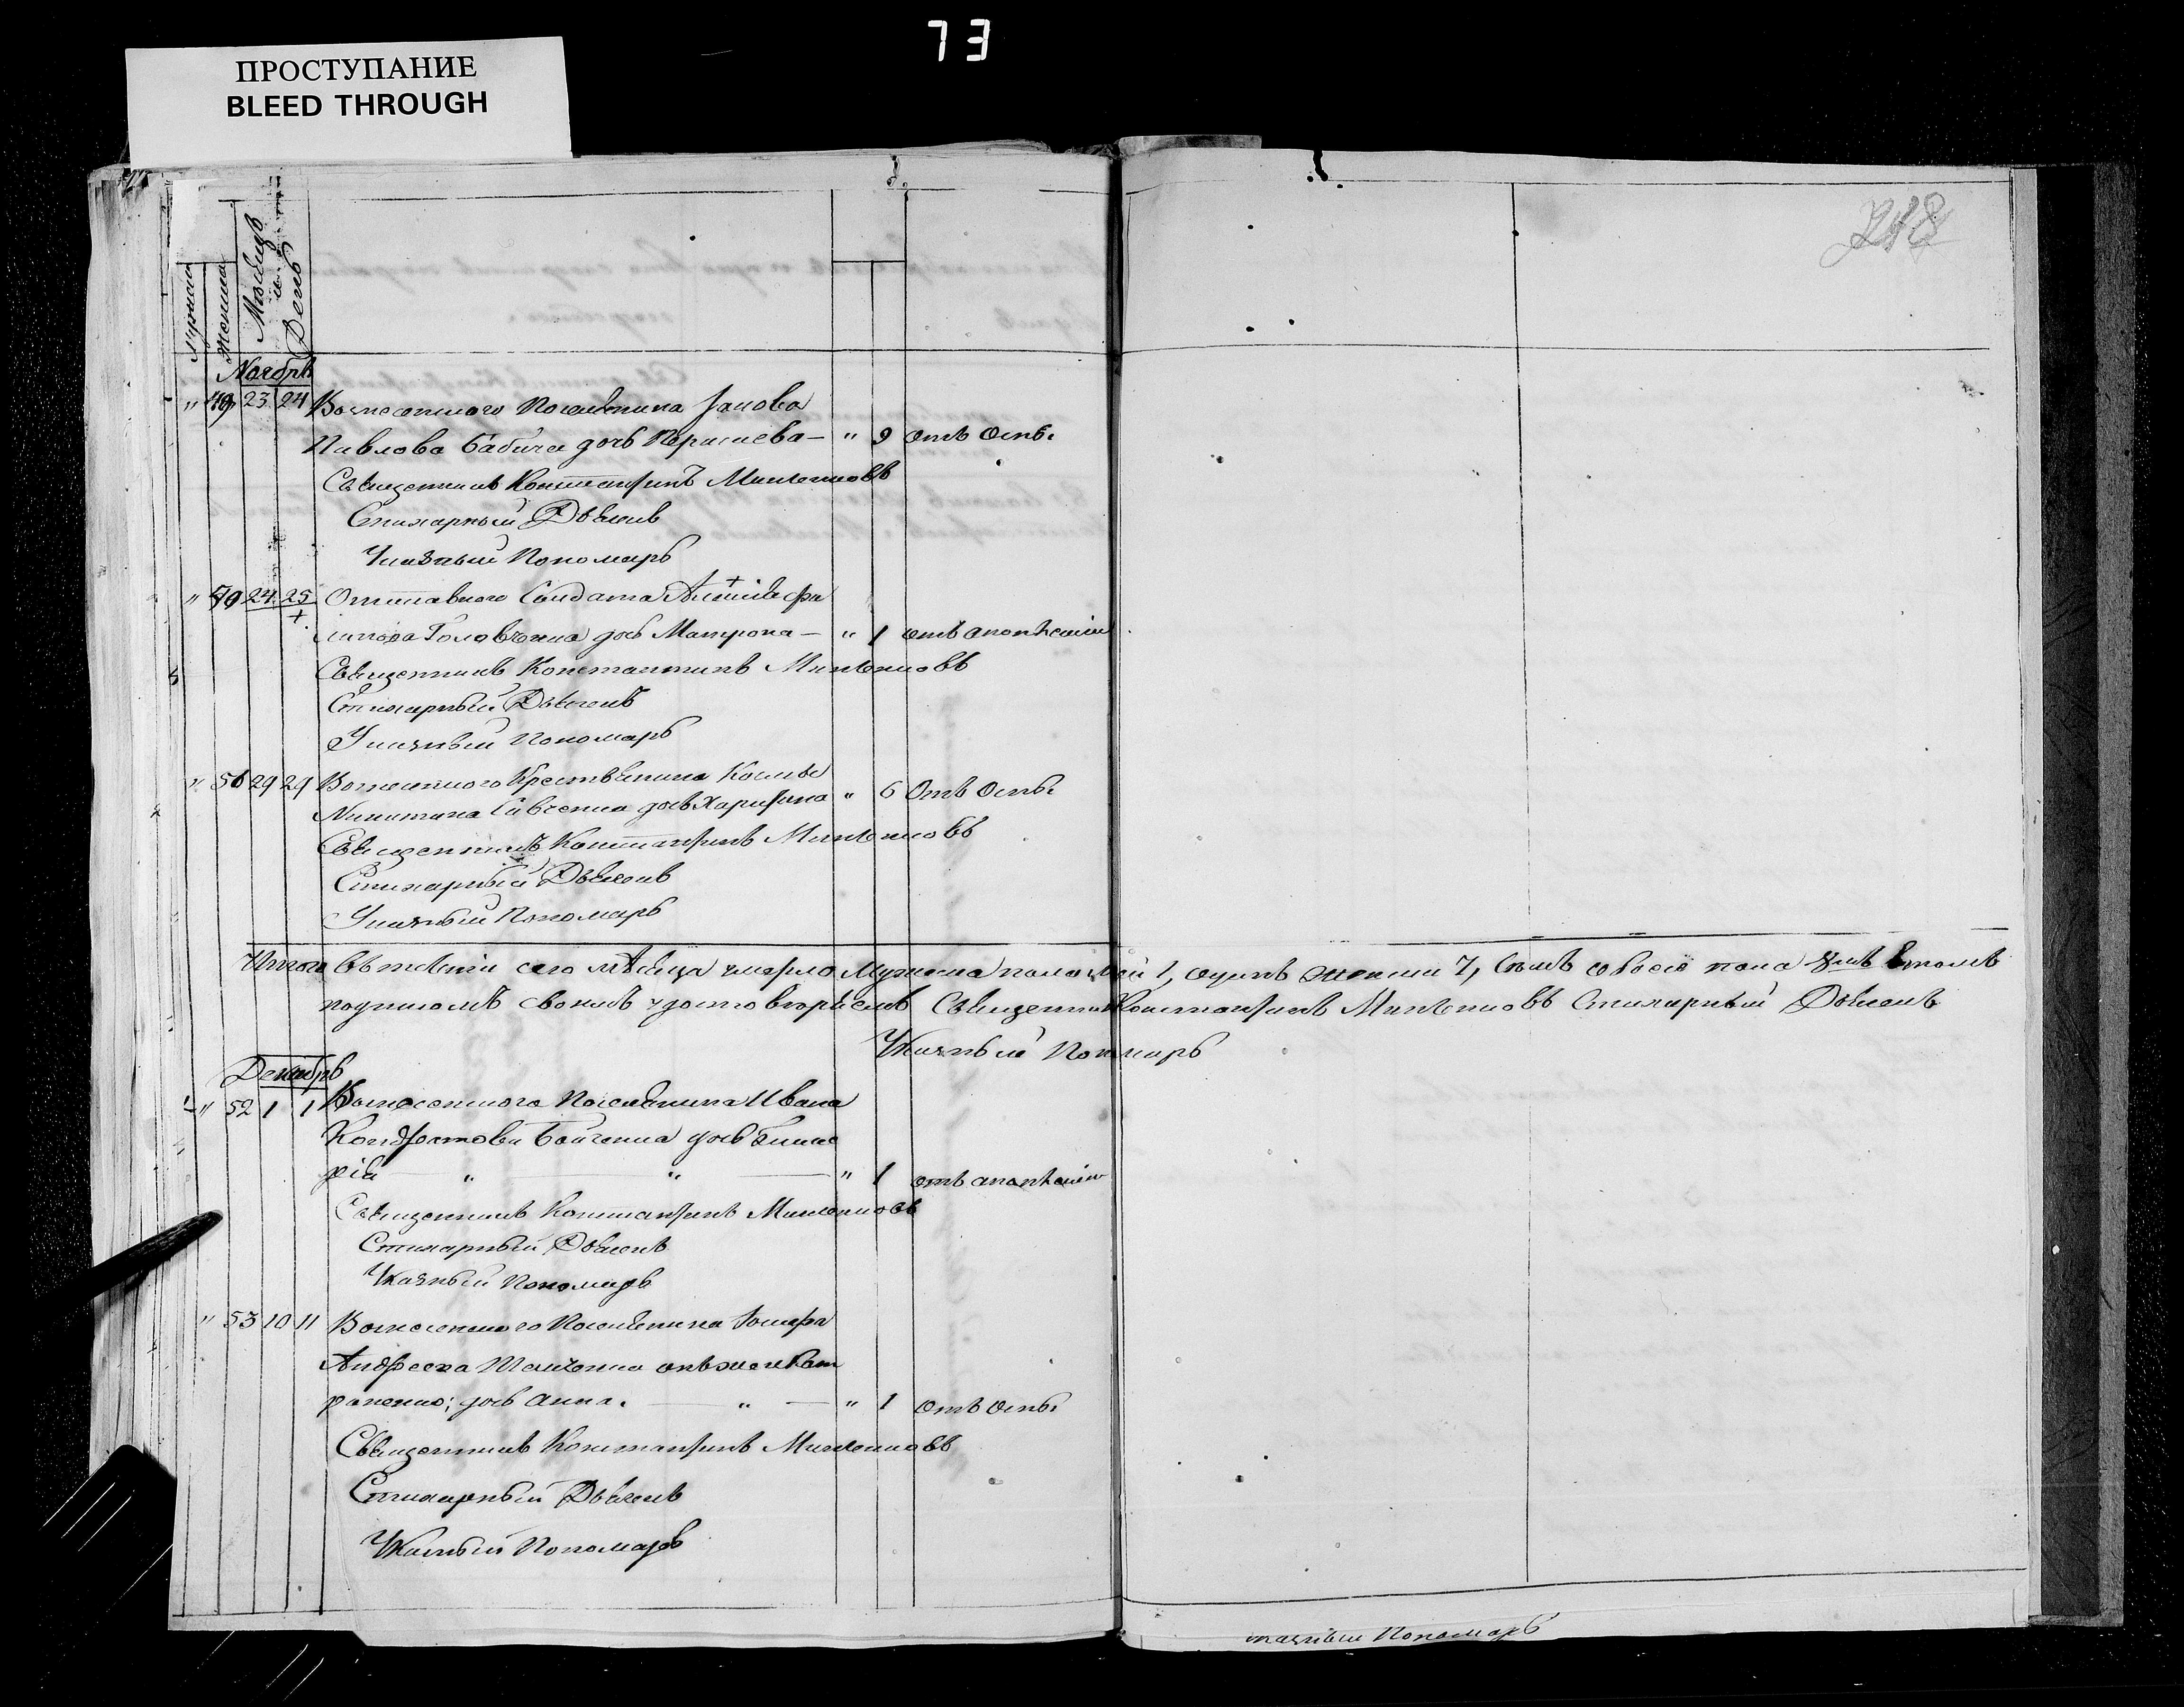 73
ПРОСТУПАНИЕ
BLEED THROUGH
248
Мужеска
Женска
Месяцъ
и
День
Ноябрь
" 49 23 24 Вознесенскаго Поселянина Іакова
Павлова Бабича дочь — " 9 отъ оспы
Священникъ Константинъ
Стихарный Дьяконъ
Указный Пономарь
" 50 24 25 Отставного Солдата
Головченка дочь Матрона — " 1 отъ апоплексіи
Священникъ Константинъ
Стихарный Дьяконъ
Указный Пономарь
" 51 29 29 Вознесенского Крестьянина Косьмы
Никитина Савченка дочь Харитина " 6 Отъ Оспы
Священникъ Константинъ
Стихарный Дьяконъ
Указный Пономарь
Итого въ теченіи сего мѣсяца умерло Мужеска пола 1, одинъ женска 7, семь обоего пола 8мь въ томъ
подписомъ своимъ удостовѣряемъ Священникъ Константинъ Стихарный Дьяконъ
Указный Пономарь
Декабрь
" 52 1 1 Вознесенскаго Поселянина Ивана
Кондратова Бойченка дочь Глике
рія " " " 1 отъ апоплексіи
Священникъ Константинъ
Стихарный Дьяконъ
Указный Пономарь
" 53 10 11 Вознесенского Поселянина
Андреева
дочь Анна. — " — " 1 отъ оспы
Священникъ Константинъ
Стихарный Дьяконъ
Указный Пономарь
Пономарь